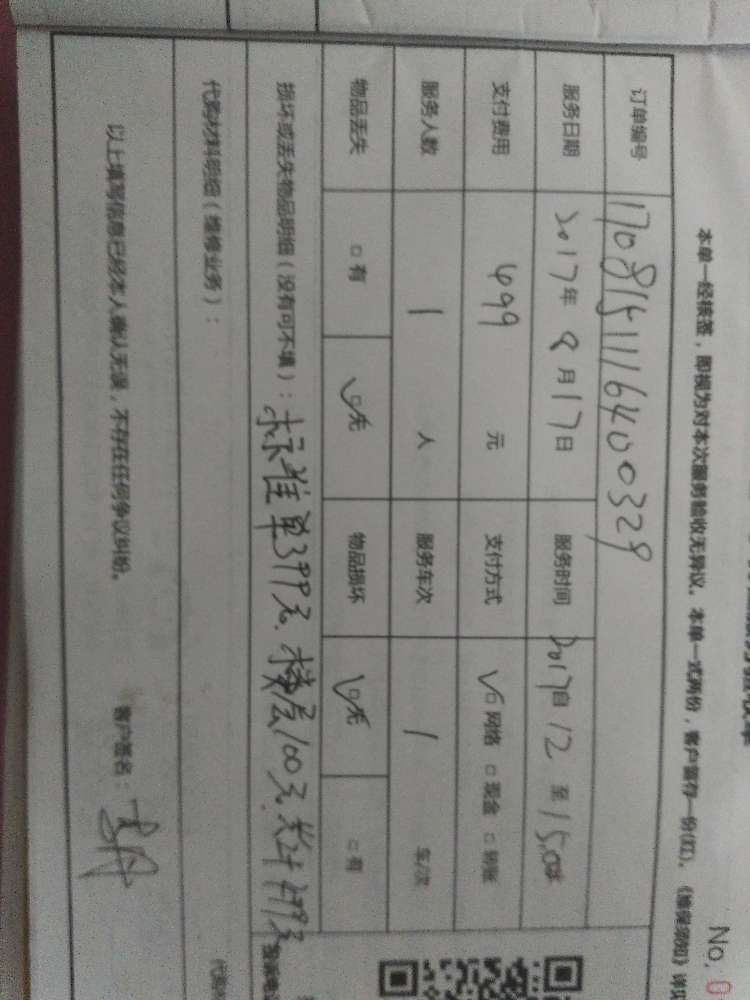 No. 0
本单一经核签，即视为对本次服务验收无异议。本单一式两份，客户留存一份(红)。
订单编号 1708151116400329
服务日期 2017年8月17日 服务时间 2017自12至15:00
支付费用 499元 支付方式 ☑网络 □现金 □转账
服务人数 1人 服务车次 1车次
物品丢失 □有 ☑无 物品损坏 ☑无 □有
损坏或丢失物品明细（没有可不填）：标准单399元、楼层100元、共计499元
代购材料明细（维修业务）：
以上填写信息已经本人确认无误，不存在任何争议纠纷。 客户签名：